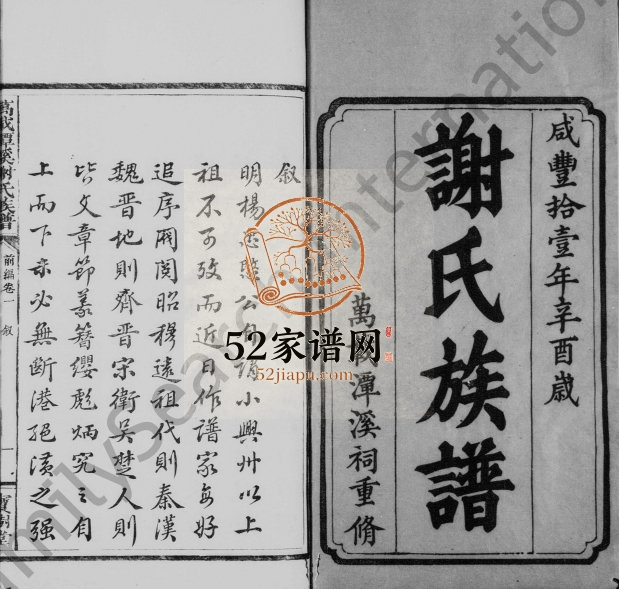 咸豐拾壹年辛酉歲
謝氏族譜
萬
潭溪祠重脩
叙
明楊
公
小興州以上
祖不可攷而近日作譜家每好
追序閥閲昭穆遠祖代則秦漢
魏晋地則齊晋宋衛吳楚人則
皆文章節義簪纓彪炳究之自
上而下亦必無斷港絕潢之强
萬載潭溪謝氏族譜
前編卷一
叙
一
寶樹堂
52家谱网
52jiapu.com
FamilySearch International